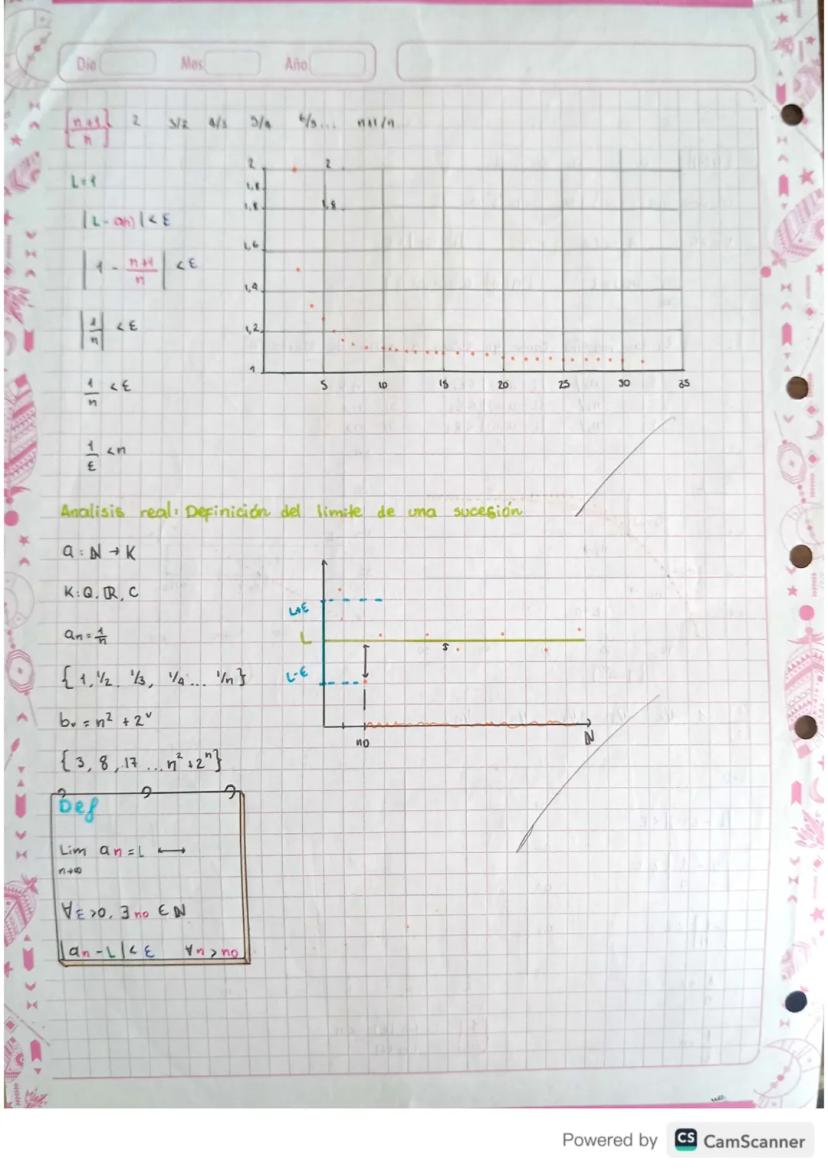 Día Mes Año
{n+1/n} 2 3/2 4/3 5/4 6/5... n+1/n
L=1
|L-an|<ε
|1 - n+1/n| <ε
|1/n| <ε
1/n <ε
1/ε <n
2 2
1,8
1,8 1,8
1,6
1,4
1,2
1
5 10 15 20 25 30 35
Analisis real: Definición del limite de una sucesión
a: ℕ → K
K: Q, ℝ, C
an = 1/n
{1, 1/2, 1/3, 1/4 ... 1/n}
bᵥ = n² + 2ᵛ
{3, 8, 17 ... n²+2ⁿ}
L+ε
L
L-ε
no
N
Def
Lim an = L ⟷
n→∞
∀ε>0, ∃ no ∈ ℕ
|an - L|< ε ∀n > no
Powered by CS CamScanner